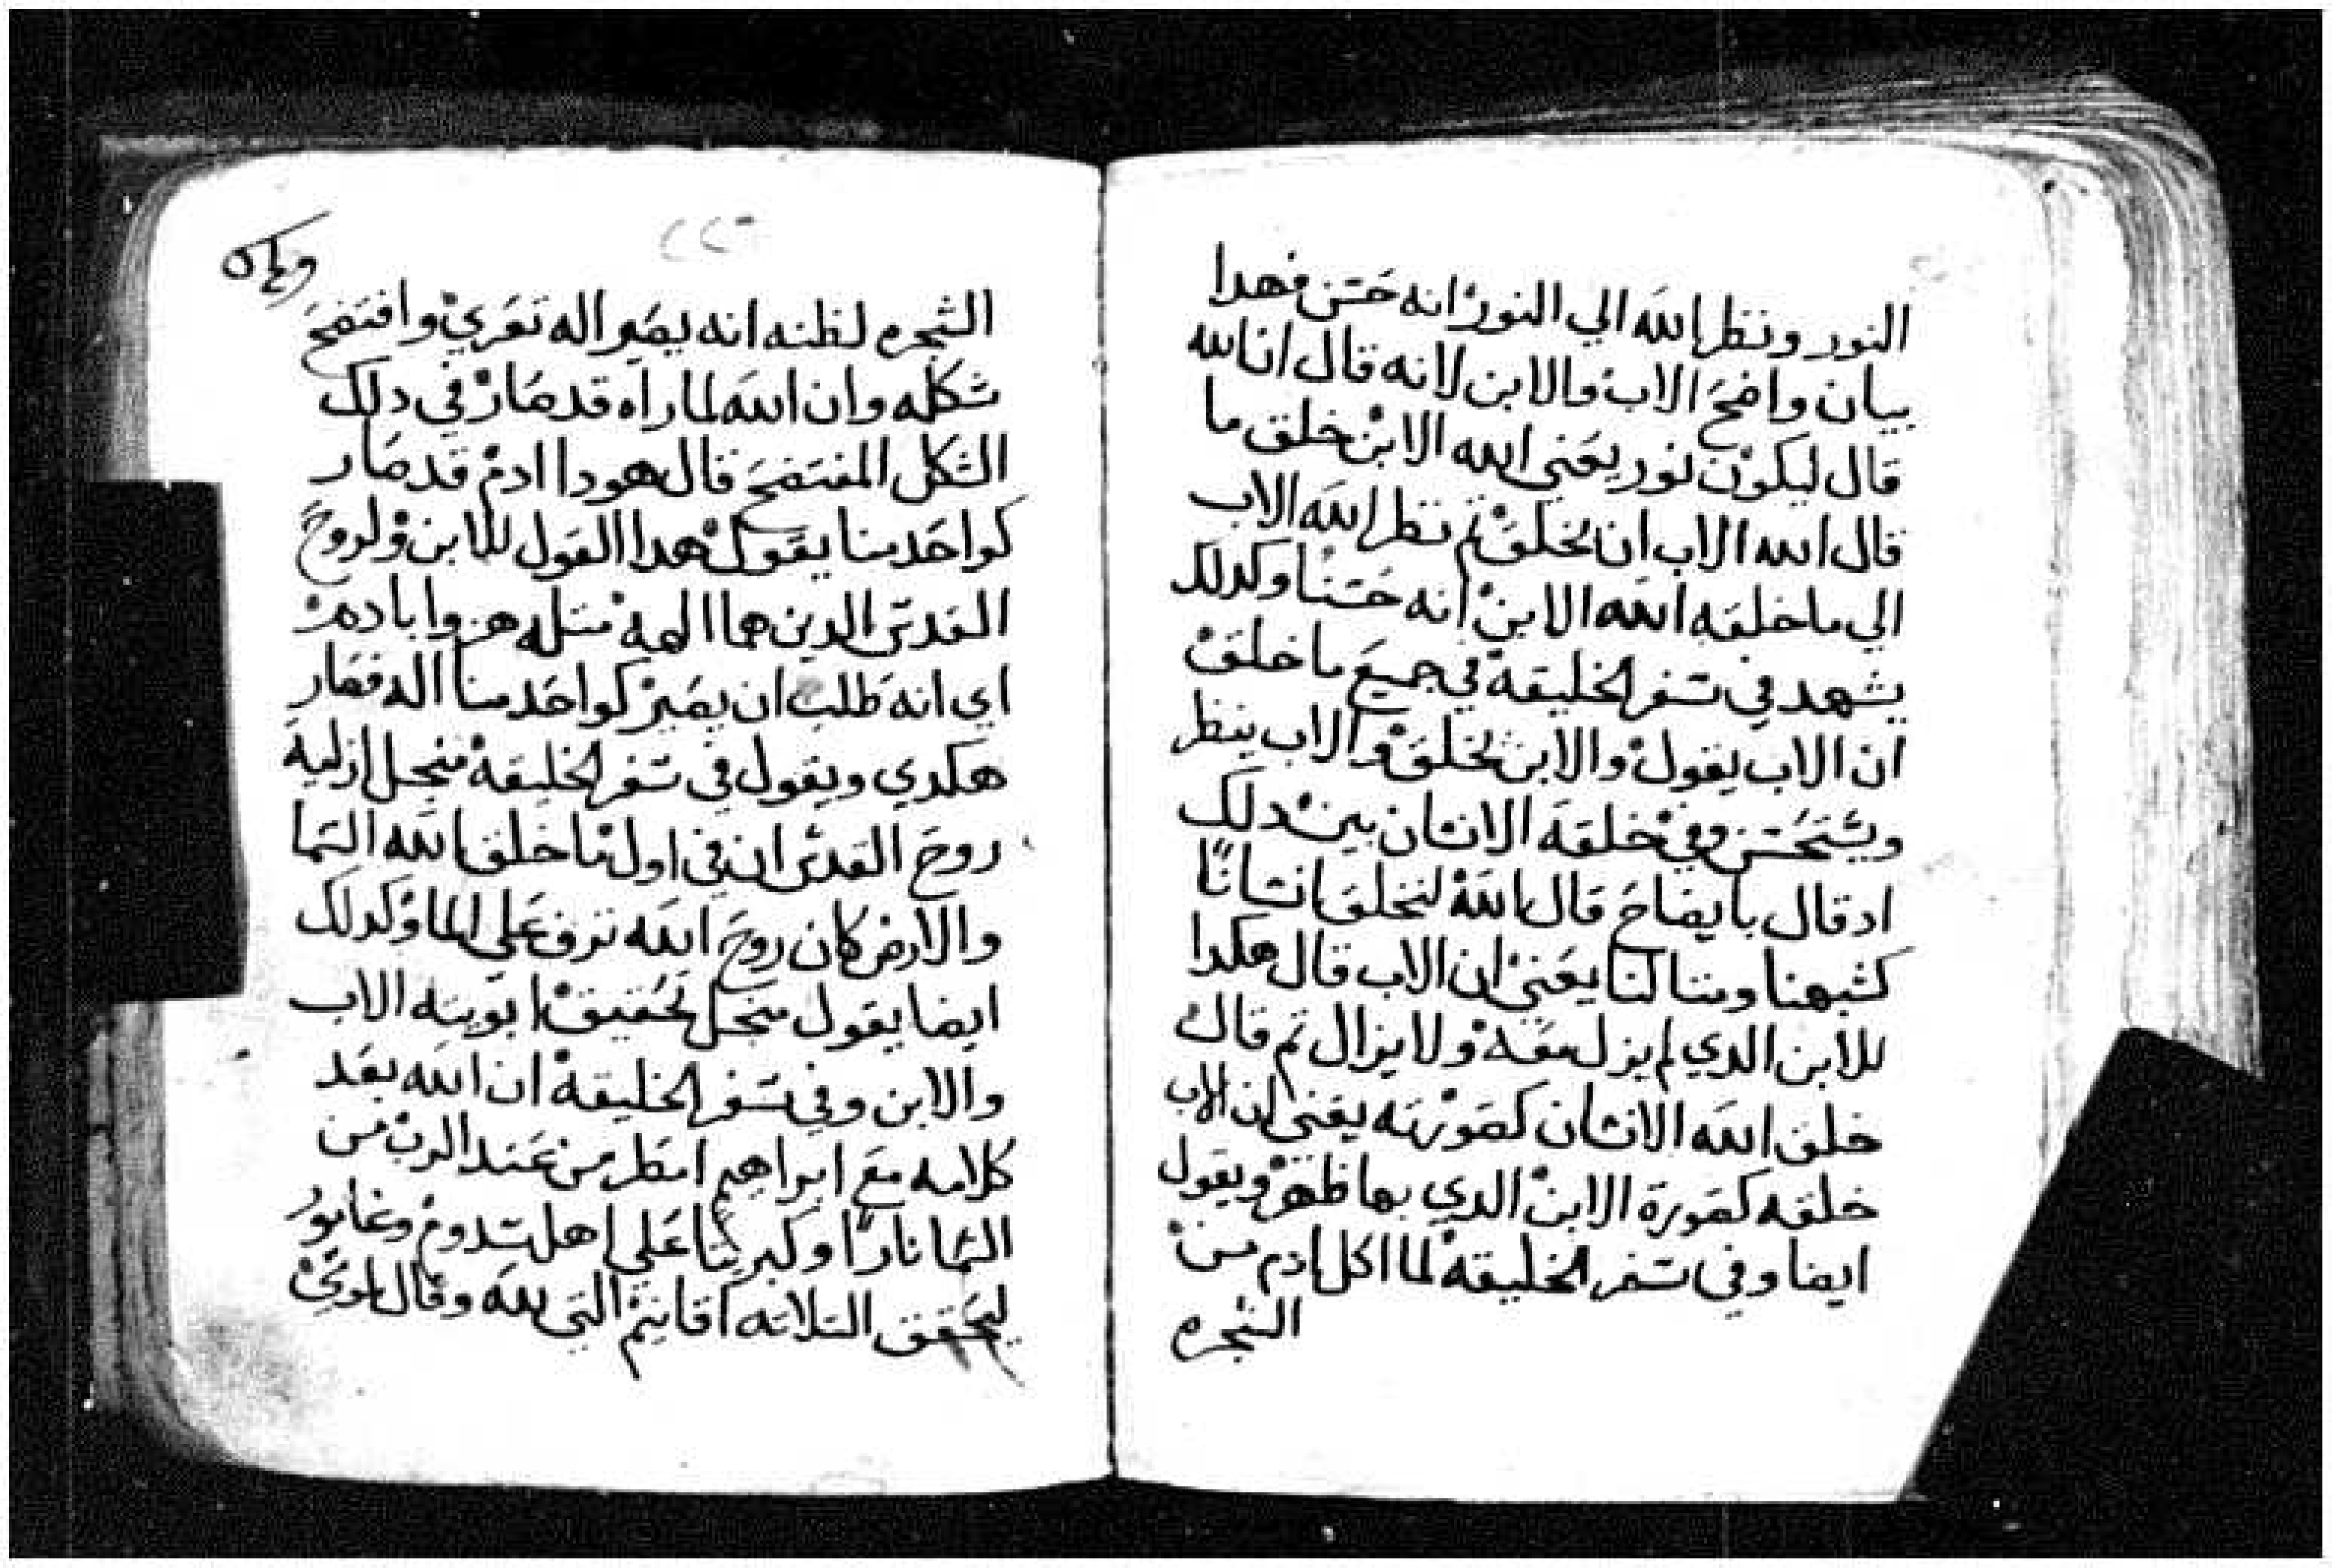 النور ونظر الله الي النور انه حسن فهدا
بيان واضح الاب والابن لانه قال ان الله
قال ليكون نور يعني الله الابن خلق ما
قال الله الاب ان يخلق تم نظر الله الاب
الي ما خلقه الله الابن انه حسنا وكدلك
يشهد في سفر الخليقة في جميع ما خلق
ان الاب يقول والابن يخلق والاب ينظر
ويستحسن وفي خلقة الانسان بين دلك
اد قال بايضاح قال الله لنخلق انسانا
كشبهنا ومتالنا يعني ان الاب قال هكدا
للابن الدي لم يزل معه ولا يزال تم قال
خلق الله الانسان كصورته يعني ان الاب
خلقه كصورة الابن الدي بها ظهر ويقول
ايضا وفي سفر الخليقة لما اكل ادم من
الشجره
الشجره لظنه انه يصير اله تعري وافتضح
شكله وان الله لما راه قد صار في دلك
الشكل المفتضح قال هودا ادم قد صار
كواحد منا يقول هدا القول للابن ولروح
القدس الدين هما الهة متله هزوا بادم
اي انه طلب ان يصير كواحد منا اله فصار
هكدي ويقول في سفر الخليقة منجل ازلية
روح القدس ان في اول ما خلق الله السما
والارض كان روح الله ترف علي الما وكدلك
ايضا يقول منجل تحقيق ابوته الاب
والابن وفي سفر الخليقة ان الله بعد
كلامه مع ابراهيم امطر من عند الرب من
السما نارا وكبريتا علي اهل سدوم وغامور
ليحقق التلاته اقانيم التي لله وقال